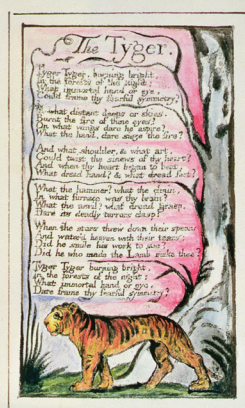 The Tyger.
Tyger Tyger, burning bright,
In the forests of the night;
What immortal hand or eye,
Could frame thy fearful symmetry?
In what distant deeps or skies.
Burnt the fire of thine eyes?
On what wings dare he aspire?
What the hand, dare sieze the fire?
And what shoulder, & what art,
Could twist the sinews of thy heart?
And when thy heart began to beat,
What dread hand? & what dread feet?
What the hammer? what the chain,
In what furnace was thy brain?
What the anvil? what dread grasp,
Dare its deadly terrors clasp!
When the stars threw down their spears
And water'd heaven with their tears:
Did he smile his work to see?
Did he who made the Lamb make thee?
Tyger Tyger burning bright,
In the forests of the night:
What immortal hand or eye,
Dare frame thy fearful symmetry?